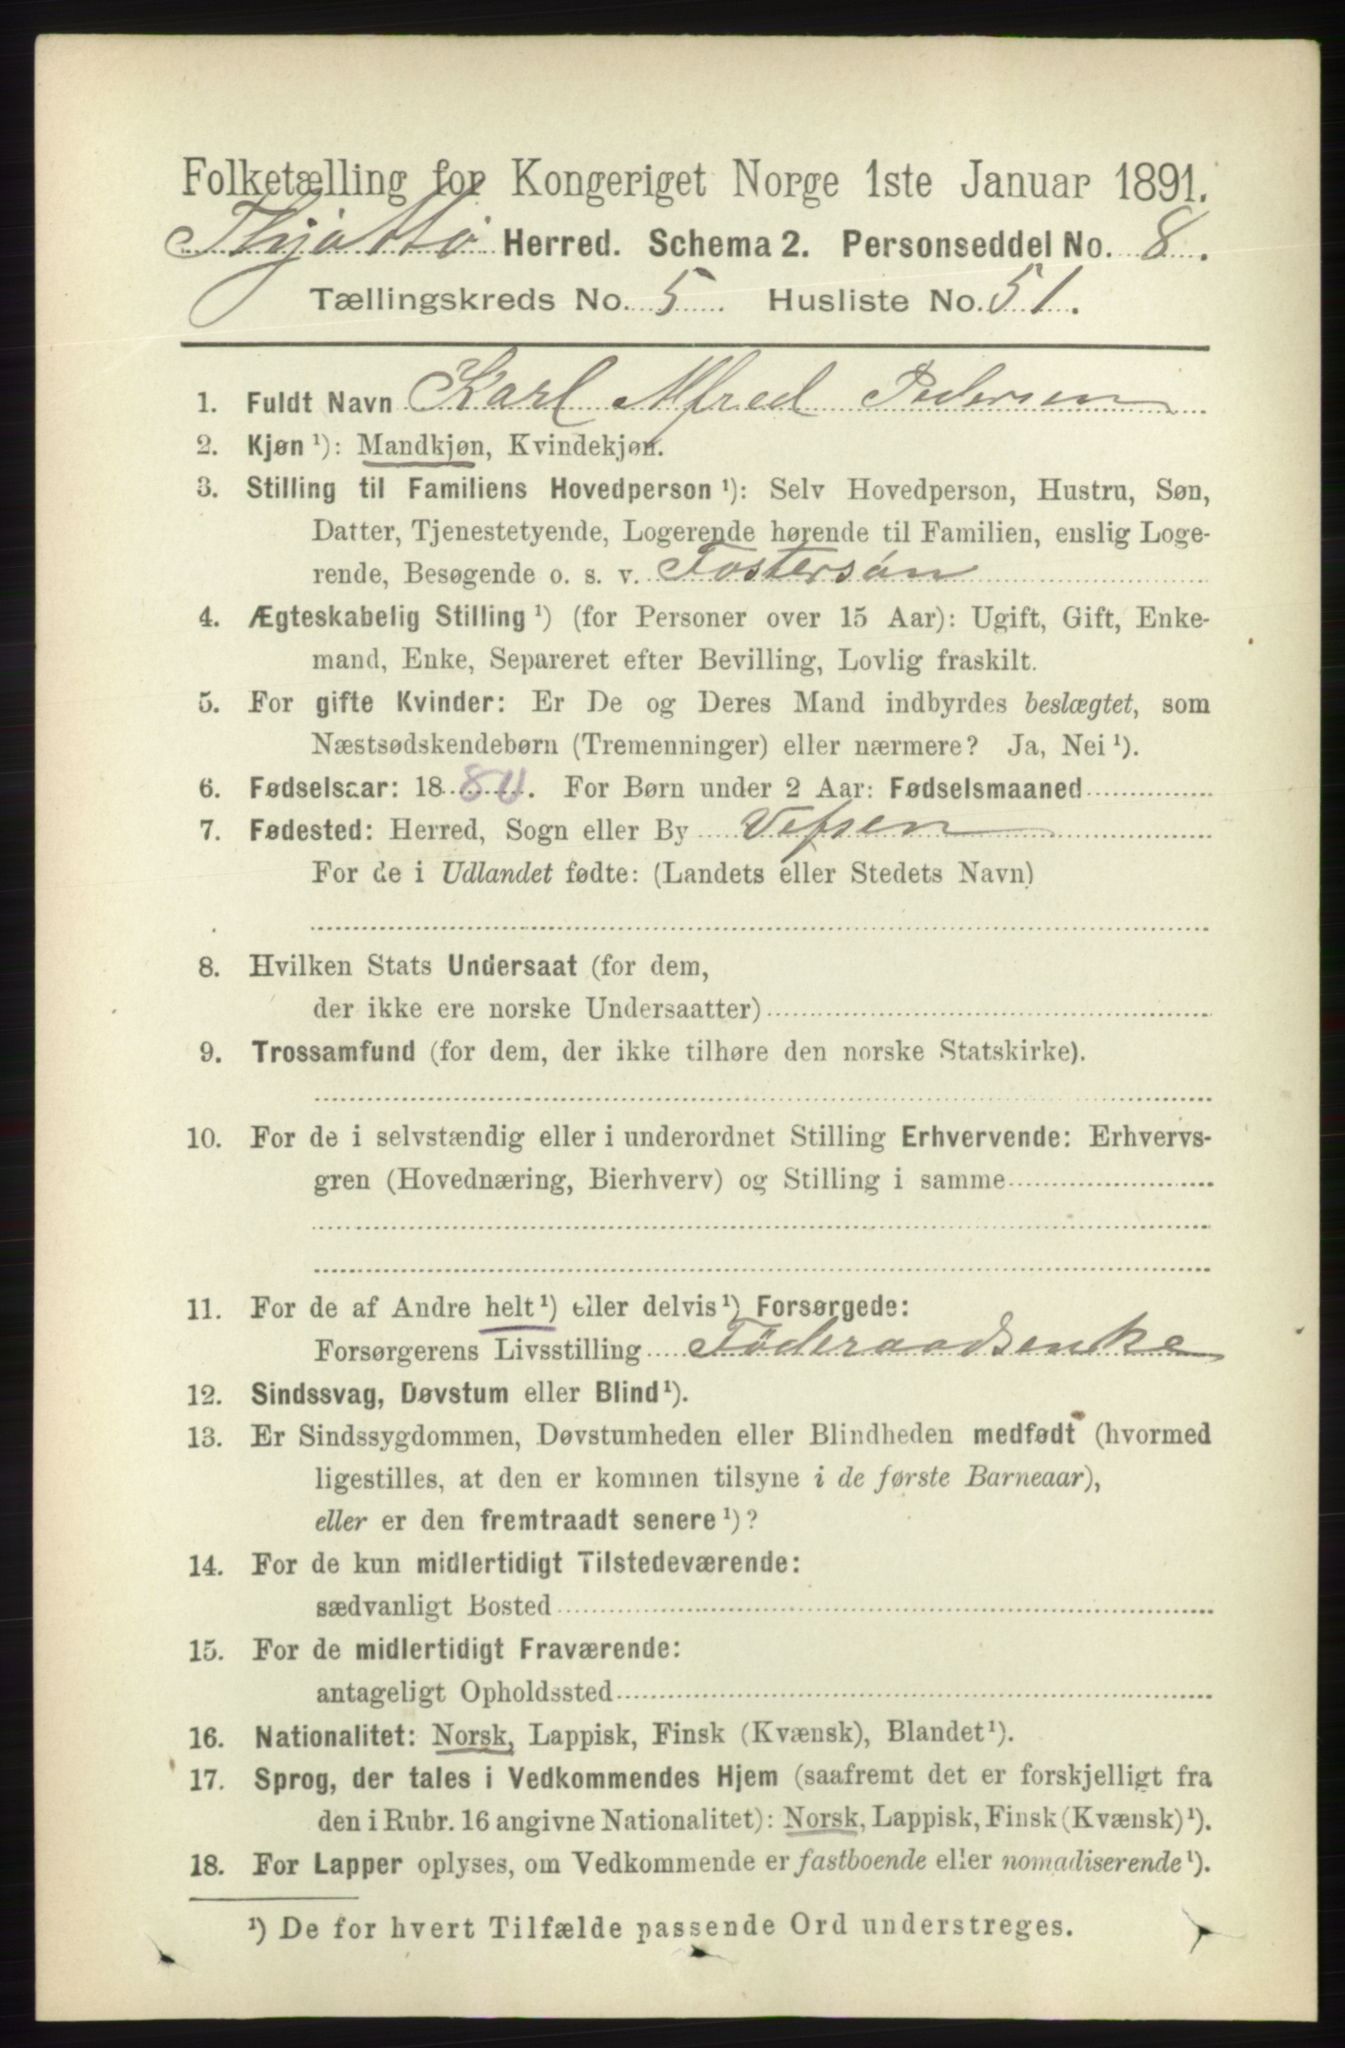 Folketælling for Kongeriget Norge 1ste Januar 1891.
Thjøttø Herred. Schema 2. Personseddel No. 8.
Tællingskreds No. 5. Husliste No. 51.
1. Fuldt Navn Karl Alfred Pedersen
2. Kjøn ¹): Mandkjøn, Kvindekjøn.
3. Stilling til Familiens Hovedperson ¹): Selv Hovedperson, Hustru, Søn,
Datter, Tjenestetyende, Logerende hørende til Familien, enslig Loge-
rende, Besøgende o. s. v. Fostersøn
4. Ægteskabelig Stilling ¹) (for Personer over 15 Aar): Ugift, Gift, Enke-
mand, Enke, Separeret efter Bevilling, Lovlig fraskilt.
5. For gifte Kvinder: Er De og Deres Mand indbyrdes beslægtet, som
Næstsødskendebørn (Tremenninger) eller nærmere? Ja, Nei ¹).
6. Fødselsaar: 1880. For Børn under 2 Aar: Fødselsmaaned
7. Fødested: Herred, Sogn eller By Vefsen
For de i Udlandet fødte: (Landets eller Stedets Navn)
8. Hvilken Stats Undersaat (for dem,
der ikke ere norske Undersaatter)
9. Trossamfund (for dem, der ikke tilhøre den norske Statskirke).
10. For de i selvstændig eller i underordnet Stilling Erhvervende: Erhvervs-
gren (Hovednæring, Bierhverv) og Stilling i samme
11. For de af Andre helt ¹) eller delvis ¹) Forsørgede:
Forsørgerens Livsstilling Føderaadsenke
12. Sindssvag, Døvstum eller Blind ¹).
13. Er Sindssygdommen, Døvstumheden eller Blindheden medfødt (hvormed
ligestilles, at den er kommen tilsyne i de første Barneaar),
eller er den fremtraadt senere ¹)?
14. For de kun midlertidigt Tilstedeværende:
sædvanligt Bosted
15. For de midlertidigt Fraværende:
antageligt Opholdssted
16. Nationalitet: Norsk, Lappisk, Finsk (Kvænsk), Blandet ¹).
17. Sprog, der tales i Vedkommendes Hjem (saafremt det er forskjelligt fra
den i Rubr. 16 angivne Nationalitet): Norsk, Lappisk, Finsk (Kvænsk) ¹).
18. For Lapper oplyses, om Vedkommende er fastboende eller nomadiserende ¹).
¹) De for hvert Tilfælde passende Ord understreges.